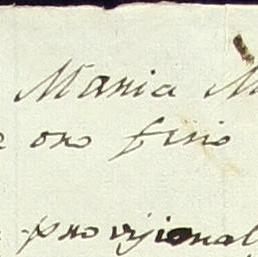 Maria M
e oro fino
provisional